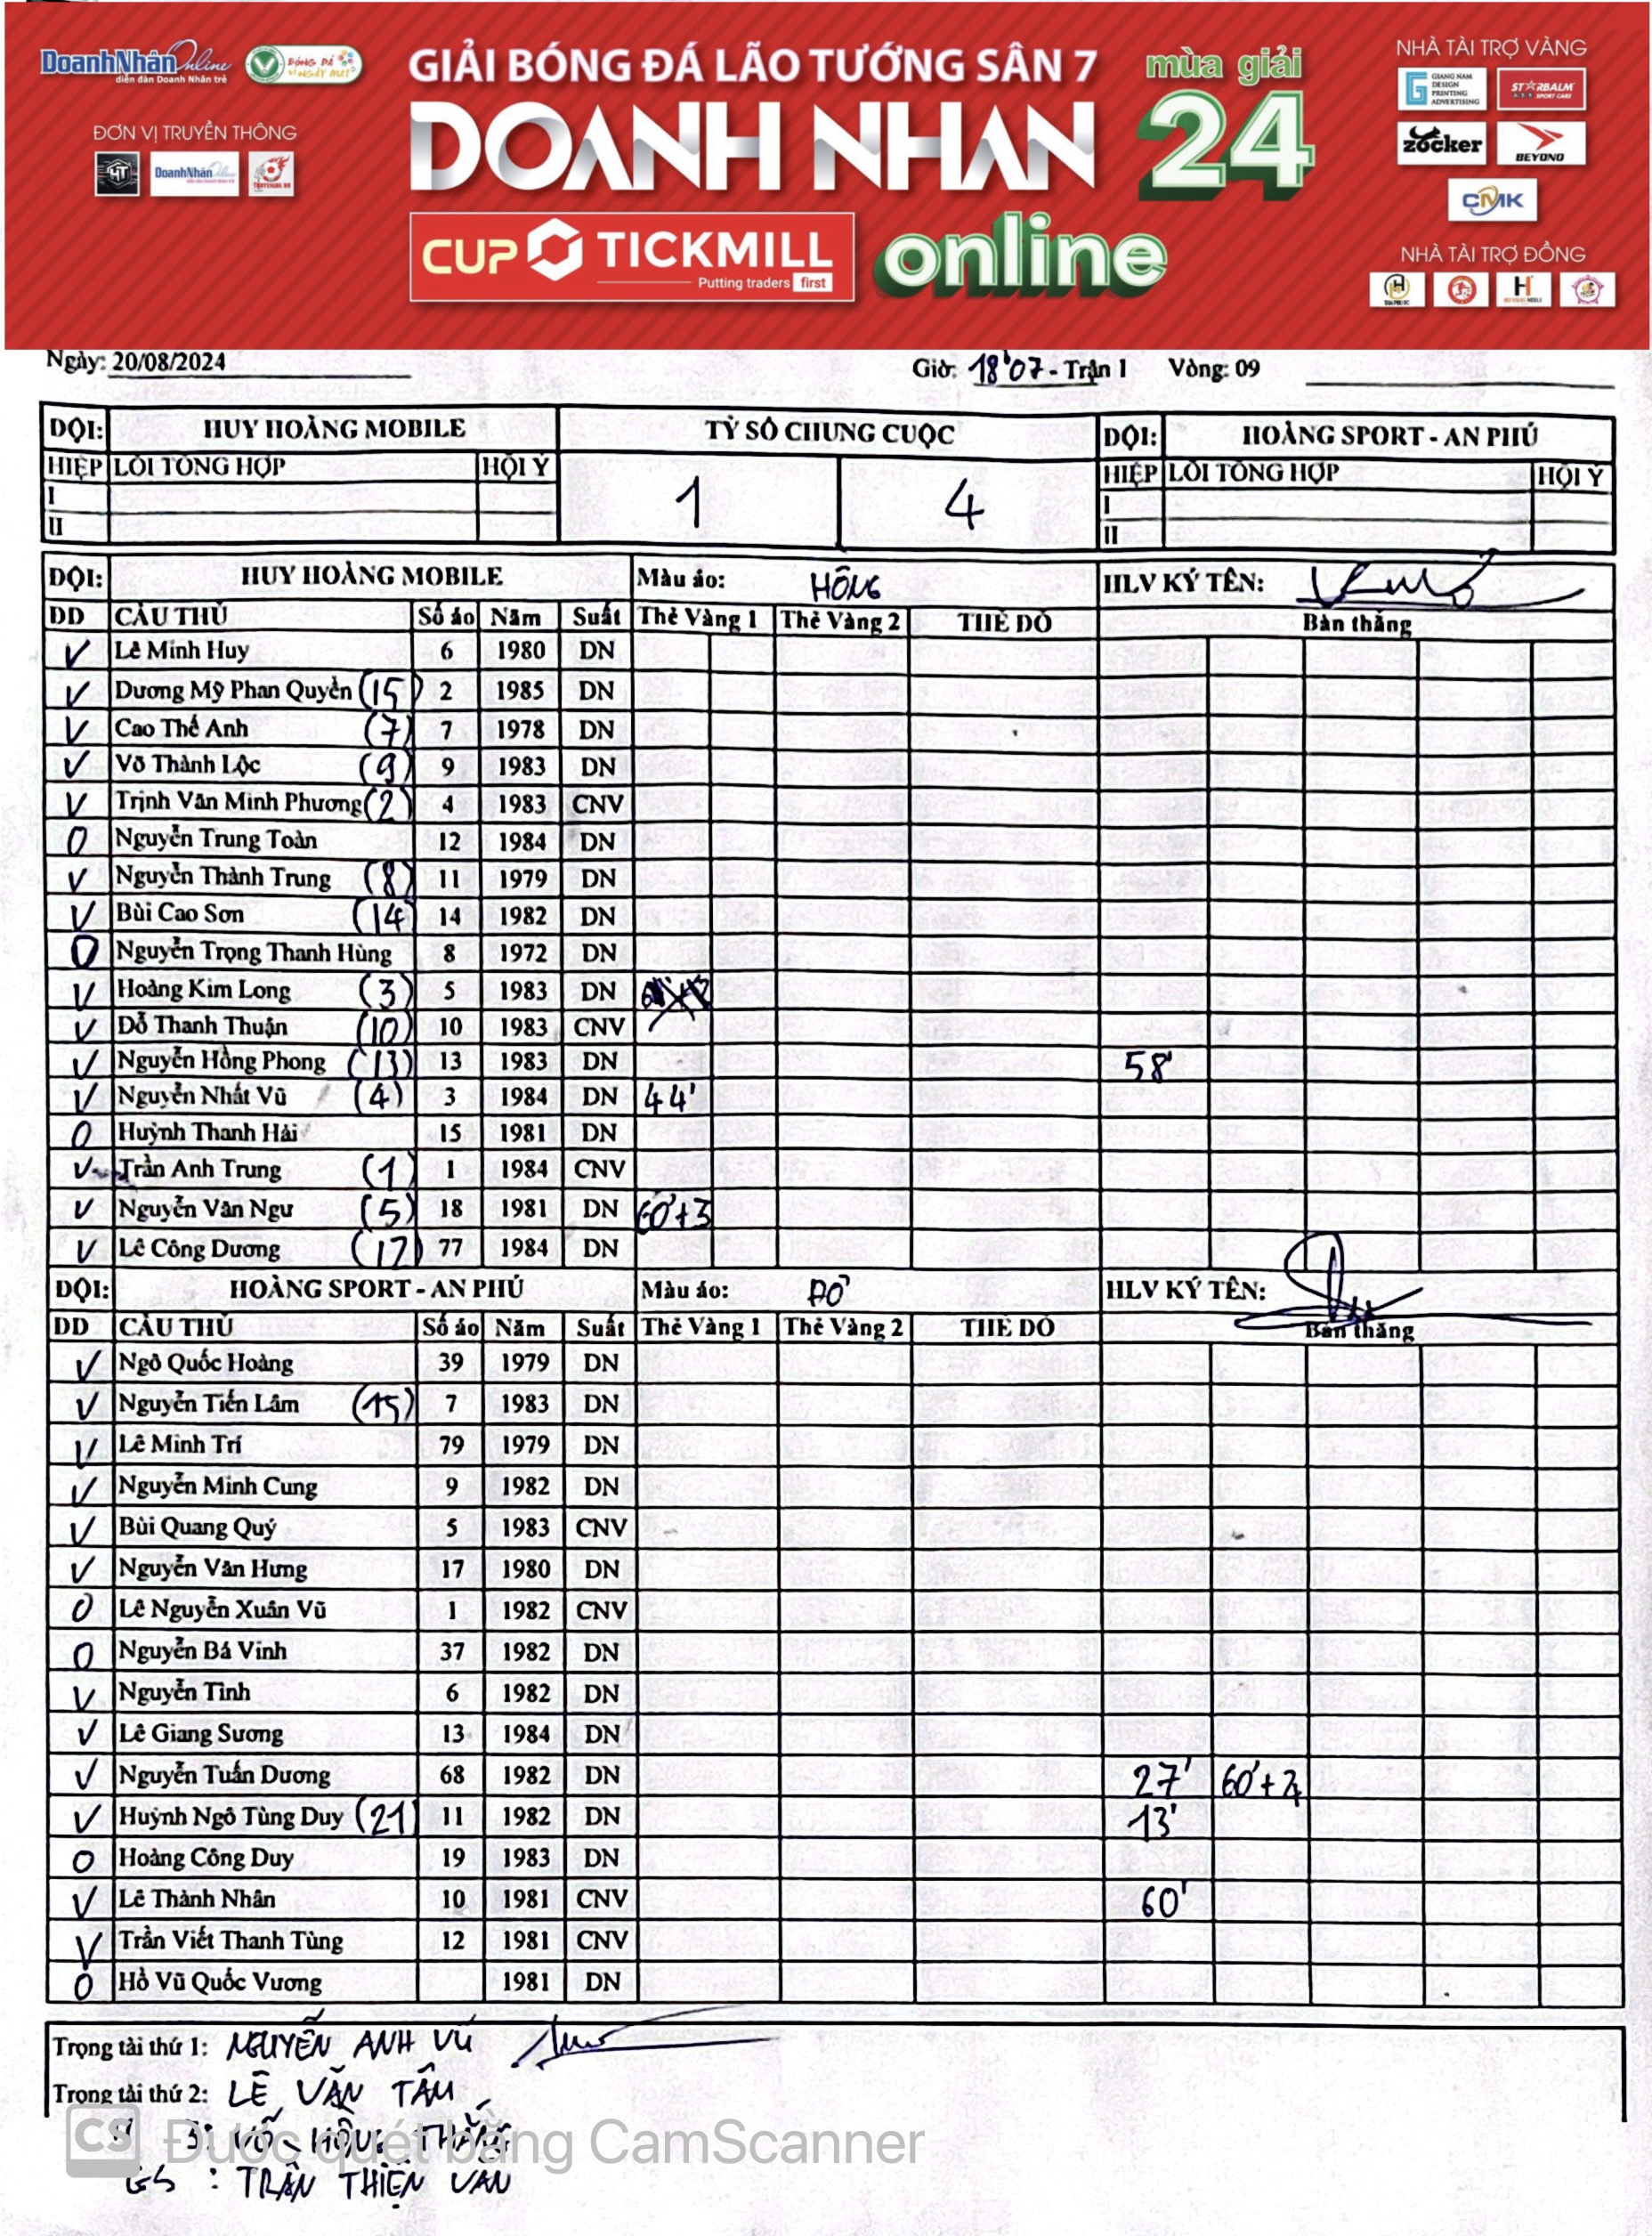 DoanhNhânOnline
diễn đàn Doanh Nhân trẻ
BÓNG ĐÁ
VÌ NGÀY MAI
ĐƠN VỊ TRUYỀN THÔNG
HT
DoanhNhânOnline
GIẢI BÓNG ĐÁ LÃO TƯỚNG SÂN 7
mùa giải
DOANH NHAN
24
CUP TICKMILL
Putting traders first
online
NHÀ TÀI TRỢ VÀNG
GIANG NAM
DESIGN
PRINTING
ADVERTISING
STARBALM
SPORT CARE
zocker
BEYONO
CMK
NHÀ TÀI TRỢ ĐỒNG
Ngày: 20/08/2024 Giờ: 18'07 - Trận 1 Vòng: 09
ĐỘI: HUY HOÀNG MOBILE TỶ SỐ CHUNG CUỘC ĐỘI: HOÀNG SPORT - AN PHÚ
HIỆP LỖI TỔNG HỢP HỘI Ý 1 4 HIỆP LỖI TỔNG HỢP HỘI Ý
I I
II II
ĐỘI: HUY HOÀNG MOBILE Màu áo: HỒNG HLV KÝ TÊN:
DD CẦU THỦ Số áo Năm Suất Thẻ Vàng 1 Thẻ Vàng 2 THẺ ĐỎ Bàn thắng
V Lê Minh Huy 6 1980 DN
V Dương Mỹ Phan Quyền (15) 2 1985 DN
V Cao Thế Anh (7) 7 1978 DN
V Võ Thành Lộc (9) 9 1983 DN
V Trịnh Văn Minh Phương (2) 4 1983 CNV
O Nguyễn Trung Toàn 12 1984 DN
V Nguyễn Thành Trung (8) 11 1979 DN
V Bùi Cao Sơn (14) 14 1982 DN
O Nguyễn Trọng Thanh Hùng 8 1972 DN
V Hoàng Kim Long (3) 5 1983 DN
V Đỗ Thanh Thuận (10) 10 1983 CNV
V Nguyễn Hồng Phong (13) 13 1983 DN 58'
V Nguyễn Nhất Vũ (4) 3 1984 DN 44'
O Huỳnh Thanh Hải 15 1981 DN
V Trần Anh Trung (1) 1 1984 CNV
V Nguyễn Văn Ngư (5) 18 1981 DN 60'+3
V Lê Công Dương (17) 77 1984 DN
ĐỘI: HOÀNG SPORT - AN PHÚ Màu áo: ĐỎ HLV KÝ TÊN:
DD CẦU THỦ Số áo Năm Suất Thẻ Vàng 1 Thẻ Vàng 2 THẺ ĐỎ Bàn thắng
V Ngô Quốc Hoàng 39 1979 DN
V Nguyễn Tiến Lâm (15) 7 1983 DN
V Lê Minh Trí 79 1979 DN
V Nguyễn Minh Cung 9 1982 DN
V Bùi Quang Quý 5 1983 CNV
V Nguyễn Văn Hưng 17 1980 DN
O Lê Nguyễn Xuân Vũ 1 1982 CNV
O Nguyễn Bá Vinh 37 1982 DN
V Nguyễn Tình 6 1982 DN
V Lê Giang Sương 13 1984 DN
V Nguyễn Tuấn Dương 68 1982 DN 27' 60'+2
V Huỳnh Ngô Tùng Duy (21) 11 1982 DN 13'
O Hoàng Công Duy 19 1983 DN
V Lê Thành Nhân 10 1981 CNV 60'
V Trần Viết Thanh Tùng 12 1981 CNV
O Hồ Vũ Quốc Vương 1981 DN
Trọng tài thứ 1: NGUYỄN ANH VŨ
Trọng tài thứ 2: LÊ VĂN TÂM
3: VÕ HỒNG THẮNG
CS Được quét bằng CamScanner
GS : TRẦN THIỆN VĂN